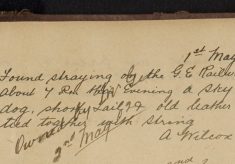 1st May
Found straying on the G.E. Railw
about 7 P.m. this Evening a Sky
dog, short Tail & old leather
tied together with string
Owned
2nd May
A Wilcox